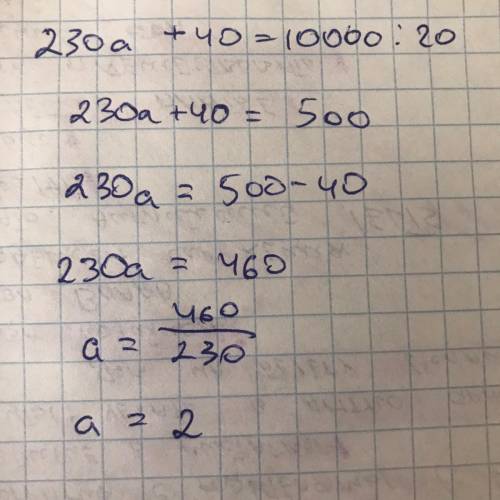 230a + 40 = 10000 : 20
230a + 40 = 500
230a = 500 - 40
230a = 460
a = 460/230
a = 2